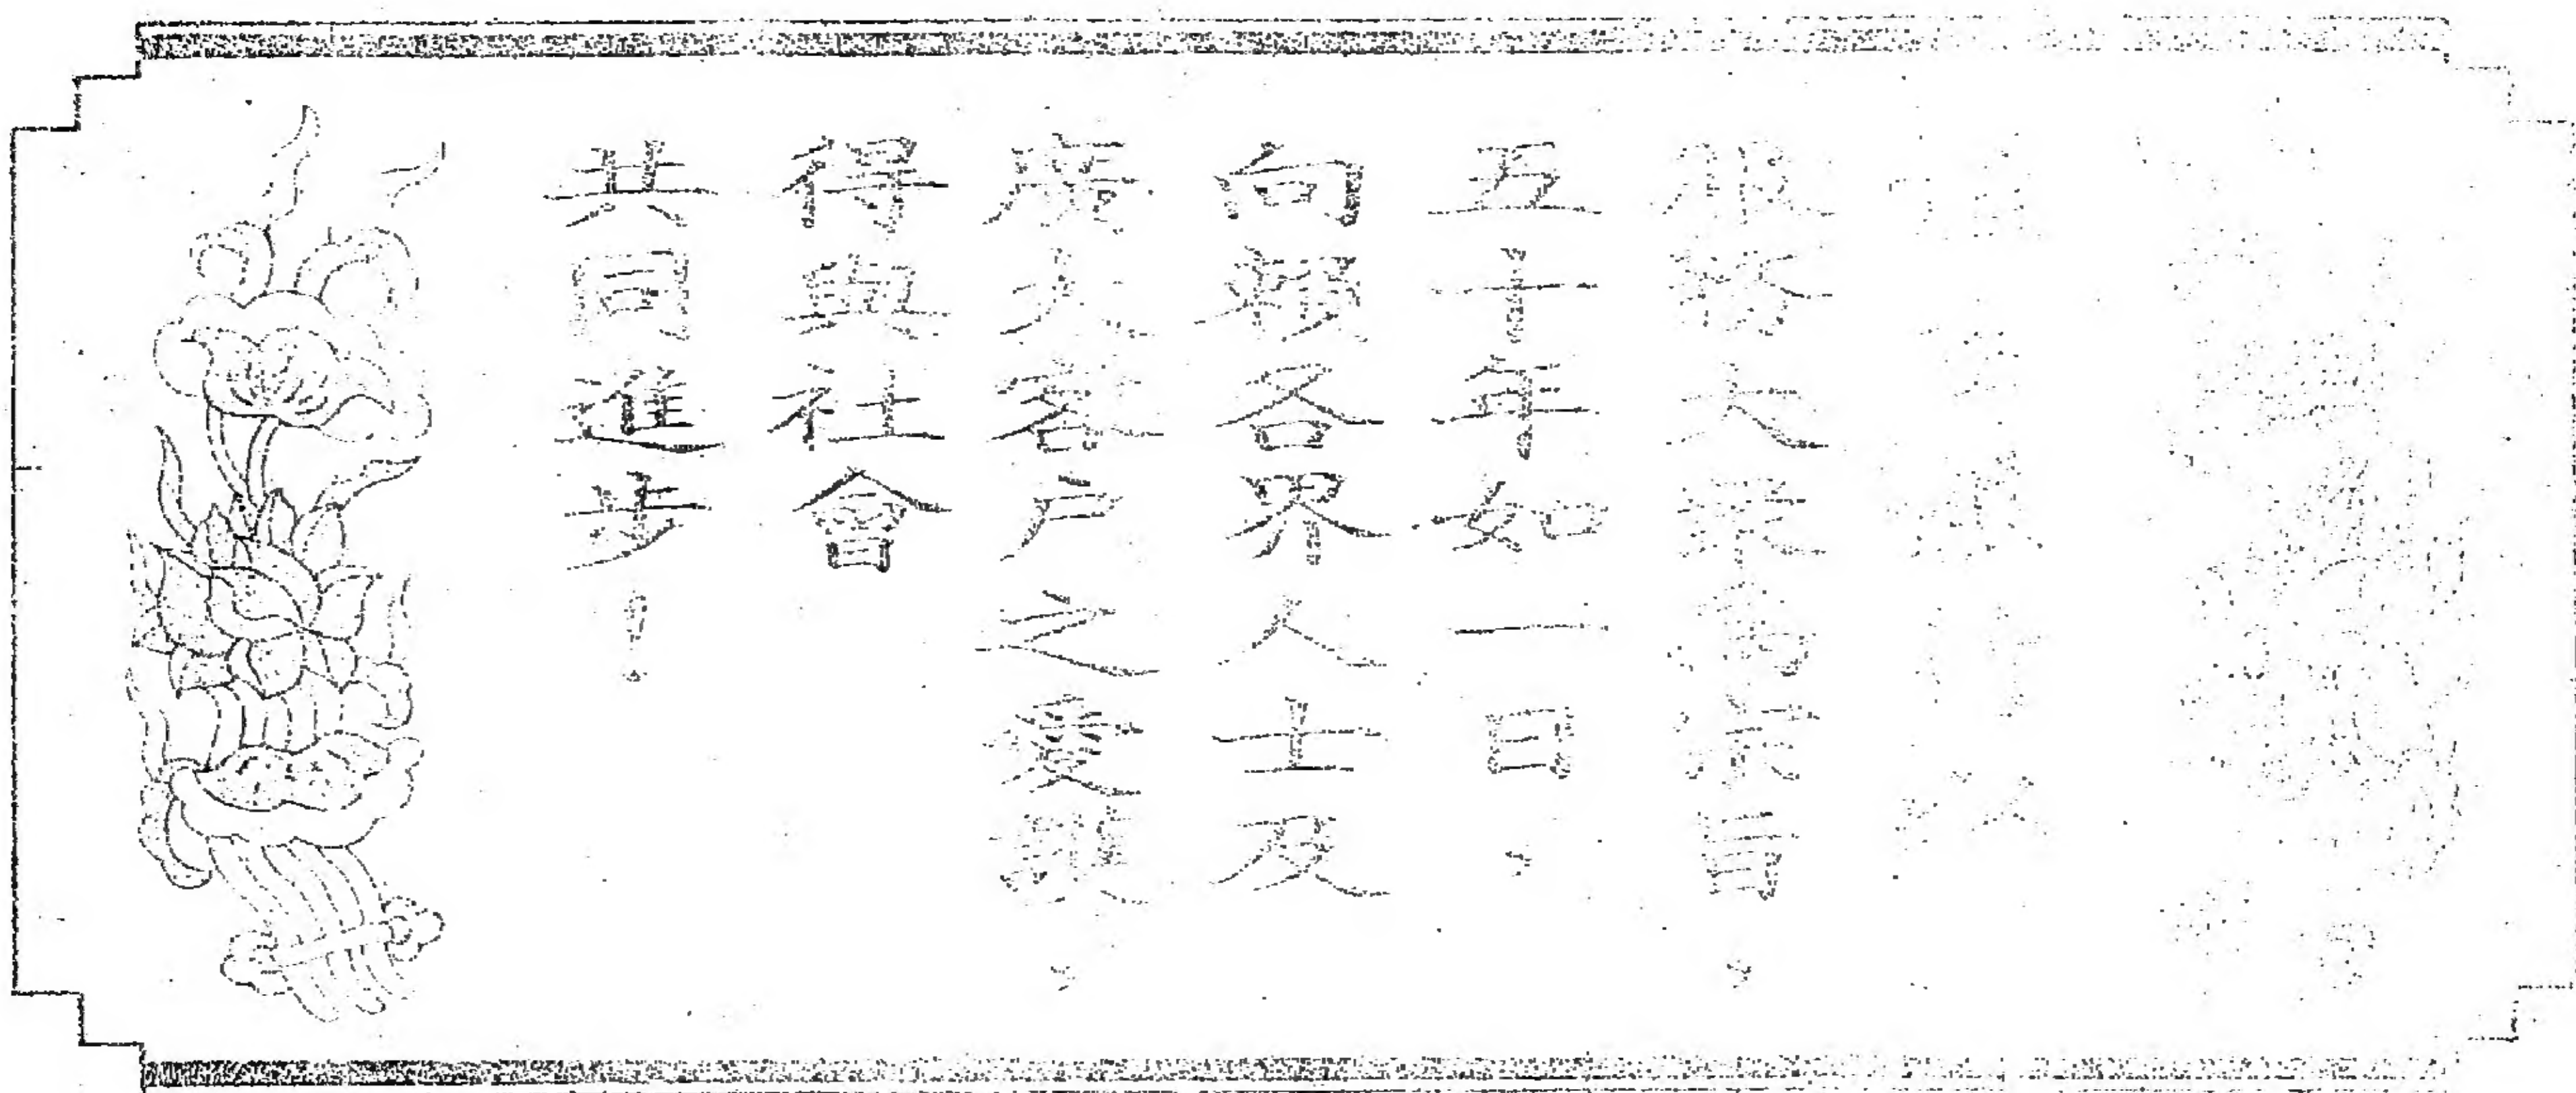 服務大衆為宗旨，
五十年如一日，
向賴各界人士及
廣大客戶之愛護，
得與社會
共同進步！